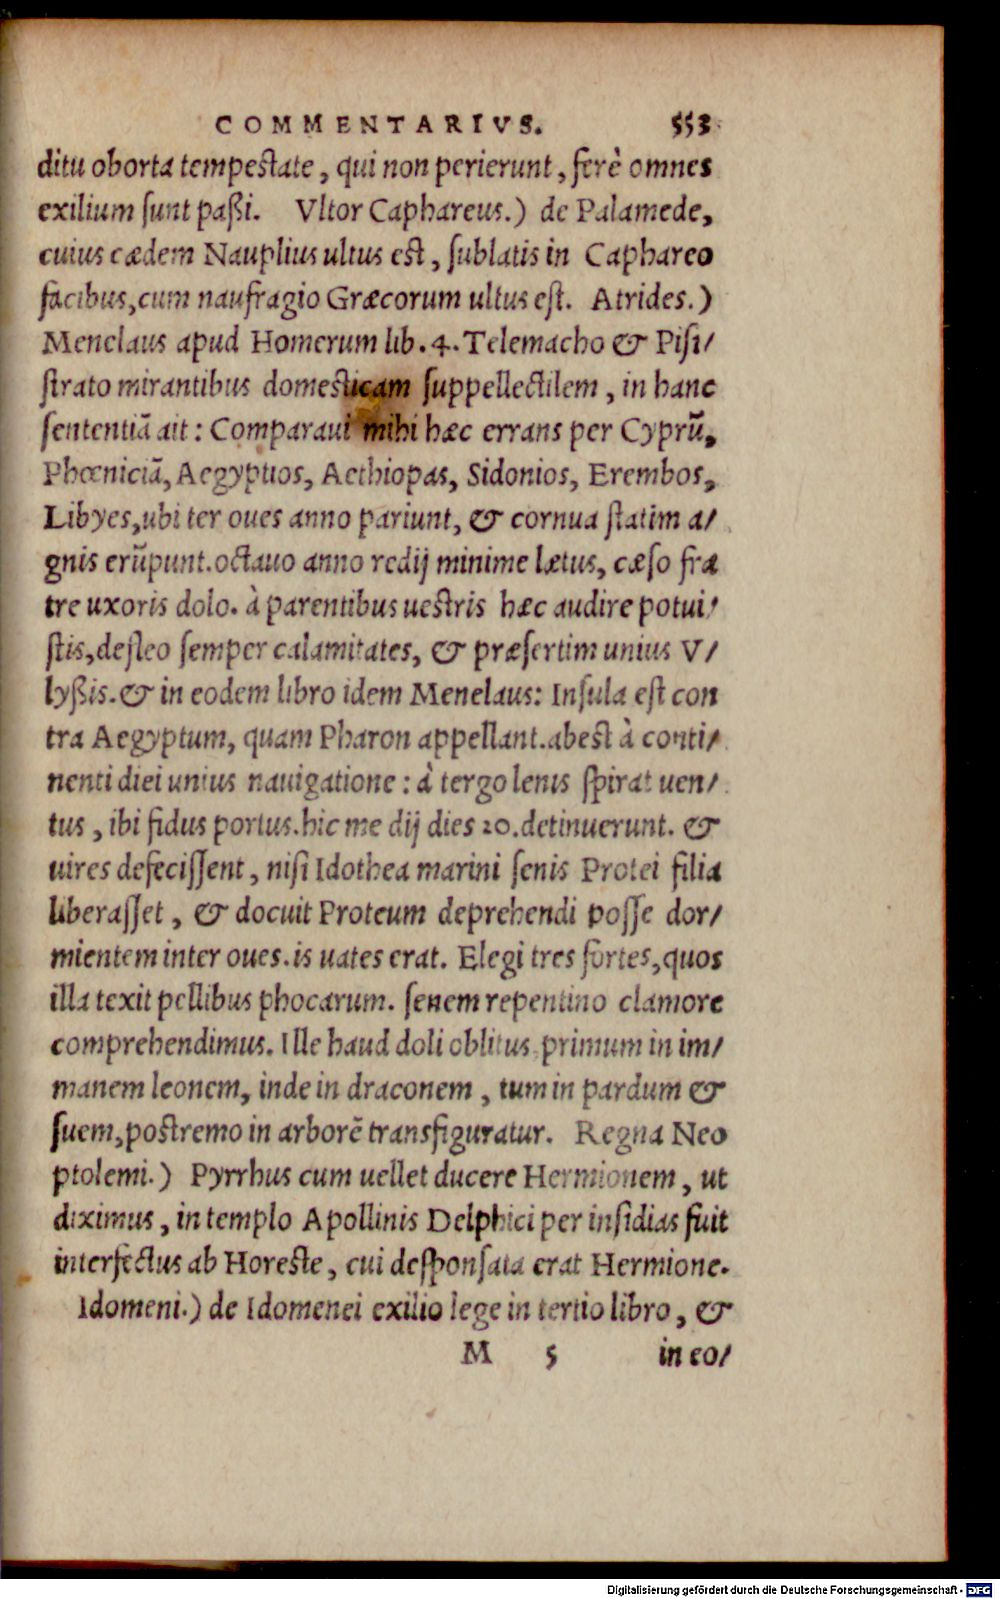 COMMENTARIVS. 553
ditu oborta tempestate, qui non perierunt, ferè omnes
exilium sunt paßi. Vltor Caphareus.) de Palamede,
cuius cædem Nauplius ultus est, sublatis in Caphareo
facibus, cum naufragio Græcorum ultus est. Atrides.)
Menelaus apud Homerum lib. 4. Telemacho & Pisi/
strato mirantibus domesticam suppellectilem, in hanc
sententiā ait: Comparaui mihi hæc errans per Cyprū,
Phœniciā, Aegyptios, Aethiopas, Sidonios, Erembos,
Libyes, ubi ter oues anno pariunt, & cornua statim a/
gnis erūpunt. octauo anno redij minime lætus, cæso fra
tre uxoris dolo. à parentibus uestris hæc audire potui/
stis, defleo semper calamitates, & præsertim unius V/
lyßis. & in eodem libro idem Menelaus: Insula est con
tra Aegyptum, quam Pharon appellant. abest à conti/
nenti diei unius nauigatione: à tergo lenis spirat uen/
tus, ibi fidus portus. hic me dij dies 20. detinuerunt. &
uires defecissent, nisi Idothea marini senis Protei filia
liberasset, & docuit Proteum deprehendi posse dor/
mientem inter oues. is uates erat. Elegi tres fortes, quos
illa texit pellibus phocarum. senem repentino clamore
comprehendimus. Ille haud doli oblitus, primum in im/
manem leonem, inde in draconem, tum in pardum &
suem, postremo in arborē transfiguratur. Regna Neo
ptolemi.) Pyrrhus cum uellet ducere Hermionem, ut
diximus, in templo Apollinis Delphici per insidias fuit
interfectus ab Horeste, cui desponsata erat Hermione.
Idomeni.) de Idomenei exilio lege in tertio libro, &
M 5 in eo/
Digitalisierung gefördert durch die Deutsche Forschungsgemeinschaft - DFG